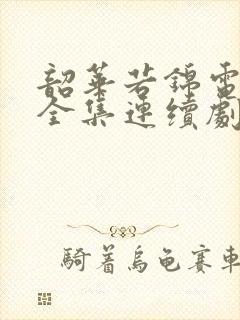 韶華若錦電
全集連續劇
騎着烏龜賽車